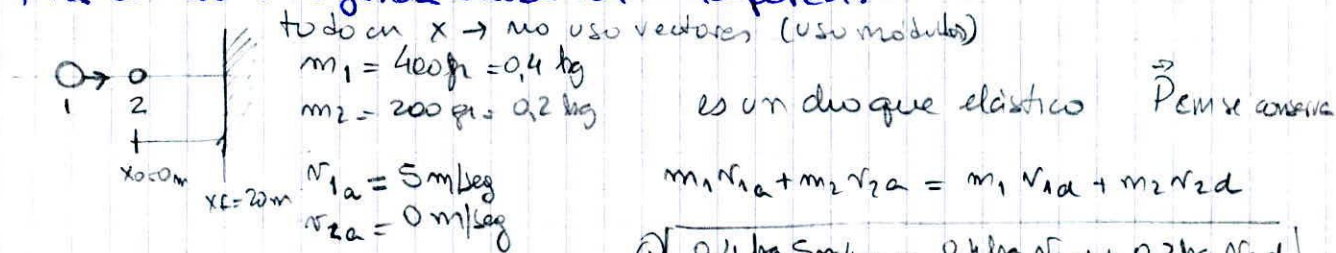 todo en x → no uso vectores (uso módulos)
m₁ = 400 gr = 0,4 kg
m₂ = 200 gr = 0,2 kg
es un choque elástico P⃗cm se conserva
1 2
x₀=0m
xf=20m
v₁ₐ = 5 m/seg
v₂ₐ = 0 m/seg
m₁ v₁ₐ + m₂ v₂ₐ = m₁ v₁d + m₂ v₂d